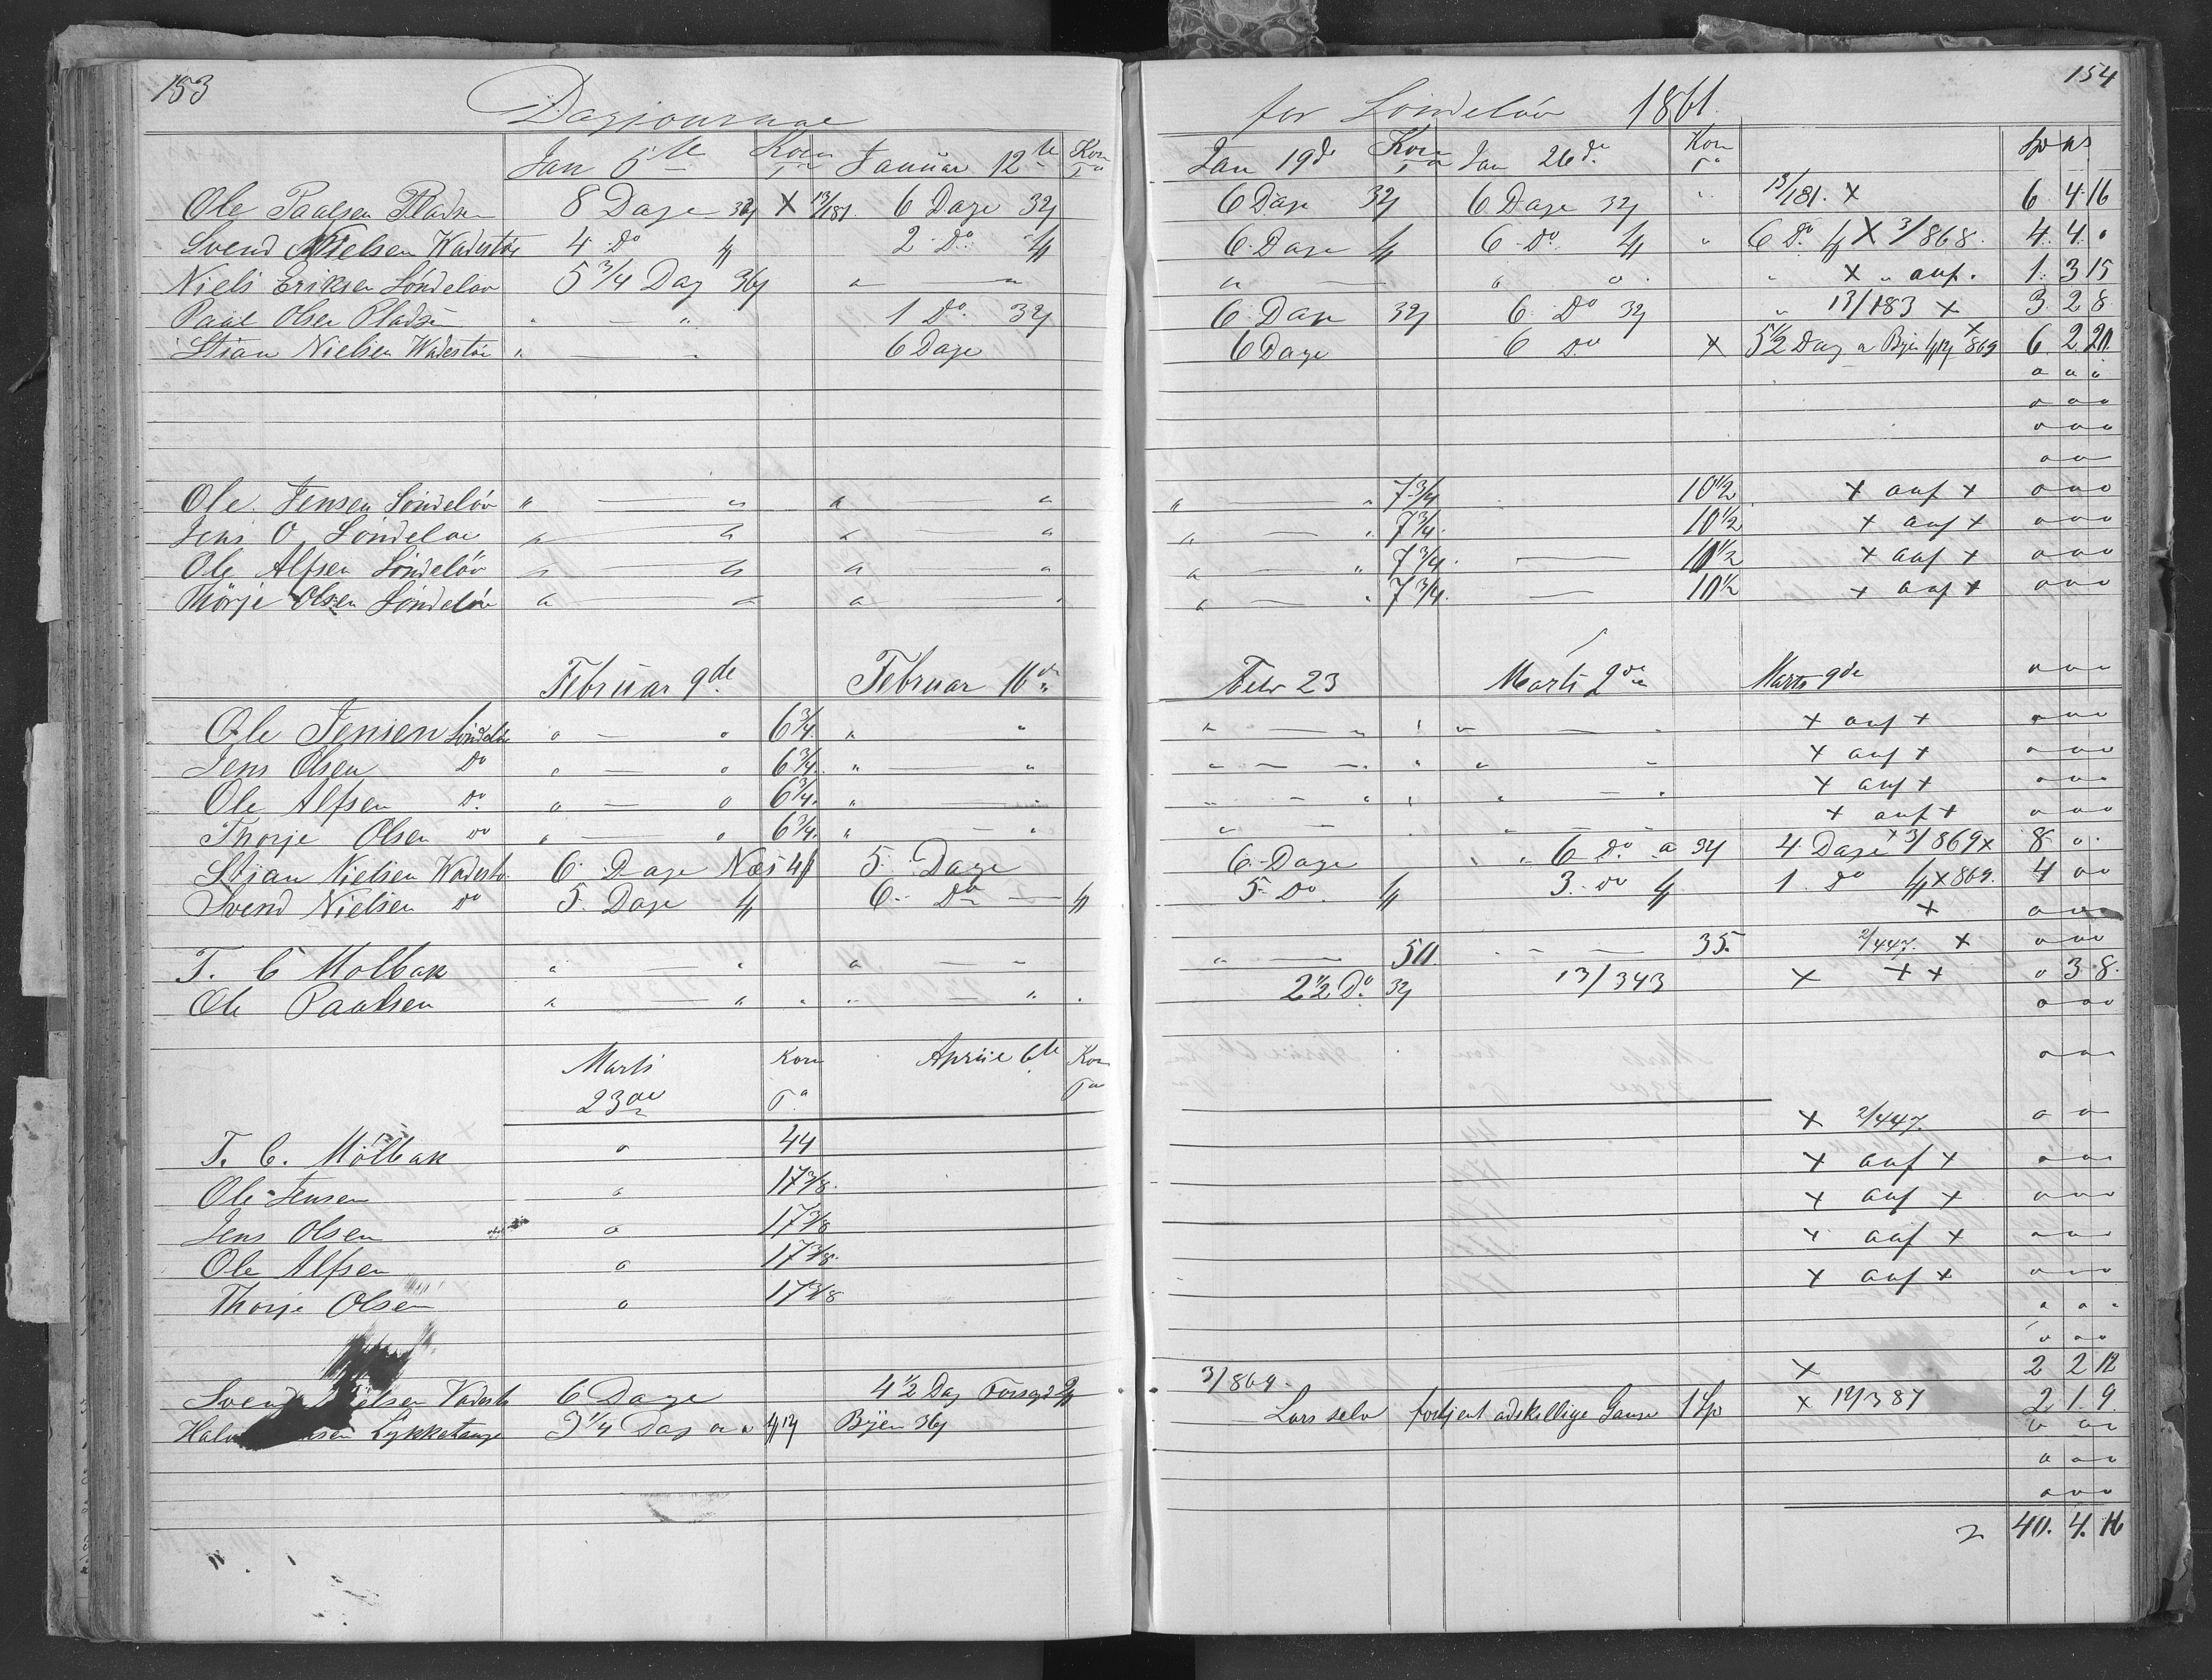 153 154
Dagjournal for Sondeløv 1861.
Jan 5te Korn Ta Januar 12te Korn Ta Jan 19de Korn Ta Jan 26de Korn Ta Sp
Ole Paalsen Pladsen 8 Dage X 13/181. 6 Dage 6 Dage 6 Dage " 13/181. X 6 4 16
Svend Nielsen Wadestøe 4 Do 2 Do 6 Dage 6 Do " 6 Do X 3/868. 4 4 0
Niels Eriksen Søndeløv 5 3/4 Dag " — " " — " " X " auf. 1 3 15
Paul Olsen Pladsen " — " 1 Do 6 Dage 6 Do " 13/183 X 3 2 8
Stian Nielsen Wadestøe " — " 6 Dage 6 Dage 6 Do X 5 1/2 Dag a Byen X 869 6 2 20
o o o
o o o
o o o
o o
Ole Jensen Søndeløv " — " " " " — " 7 3/4 10 1/2 X auf X o o o
Jens O Søndeløv " — " " — " " — " 7 3/4. 10 1/2 X auf X o o o
Ole Alfsen Søndeløv " — " " — " " — " 7 3/4. — 10 1/2 X auf X o o o
Thorje Olsen Søndeløv " — " " — " " — " 7 3/4. — 10 1/2 X auf X o o o
Februar 9de Februar 16de Febr 23 Marts 2de Marts 9de o o o
Ole Jensen Søndeløv o — o 6 3/4. " " " — " " " — X auf X o o o
Jens Olsen Do o — o 6 3/4. " — " " — " " " X auf X o o o
Ole Alfsen Do o — o 6 3/4. " — " " — " " — X auf X o o o
Thorje Olsen Do " — o 6 3/4. " — " " — " — X auf X o o o
Stian Nielsen Wadestø 6 Dage Næs 5 Dage 6 Dage " " 6 Do a 4 Dage X 3/869 X 8 o
Svend Nielsen Do 5 Dage 6 Do — 5 Do 3 Do 1 Do X 869. 4 o o
X o o o
T. C Molbak " — " " — " " — 50 — 35. 2/447. X o o o
Ole Paalsen " — " " " — " 2 1/2 Do 13/343 X X X o 3 8.
o o o
Marts Korn Aprill 6te Korn o o o
23de Ta Ta
T. C. Mölbak o 44 X 2/447. o o
Ole Jensen o 17 3/8. X auf X o o o
Jens Olsen o 17 3/8 X auf X o o o
Ole Alfsen o 17 3/8. X auf X o o o
Thorje Olsen o 17 3/8 X auf X o o o
o o o
o o o
Svend Nielsen Vadestø 6 Dage 4 1/2 Dag 3/869. X 2 2 12
Lykketange 3 1/4 Dag Byen Lars selv fortjent adskellige Gange 1 Sp X 12/387 2 1 9.
o o o
o o o
o o o
40. 4. 16